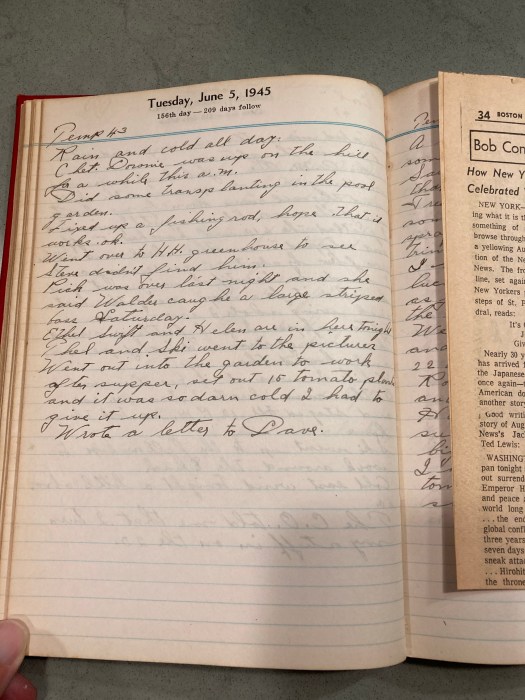 Tuesday, June 5, 1945
156th day — 209 days follow
Temp 43
Rain and cold all day.
Chet. Downie was up on the hill
for a while this a.m.
Did some transplanting in the pool
garden.
Fixed up a fishing rod, hope that it
works ok.
Went over to H.H. greenhouse to see
Steve didn't find him.
Rick was over last night and she
said Walder caughe a large striped
bass Saturday.
Ethel Swift and Helen are in here tonight
Chel and Ski went to the pictures
Went out into the garden to work
after supper, set out 15 tomato plants
and it was so darn cold I had to
give it up.
Wrote a letter to Dave.
34 BOSTON
Bob Con
How New Y
Celebrated
NEW YORK—
ing what it is t
something of
browse through
a yellowing Au
tion of the Ne
News. The fro
line, set again
New Yorkers
steps of St. P
dral, reads:
It's
J
Giv
Nearly 30 y
has arrived
the Japanese
once again—
American do
another story
Good writ
story of Aug
News's Jac
Ted Lewis:
WASHING
pan tonight
out surrend
Emperor H
and peace
world long
. . . the en
global confl
three years
seven days
sneak atta
. . . Hirohit
the throne